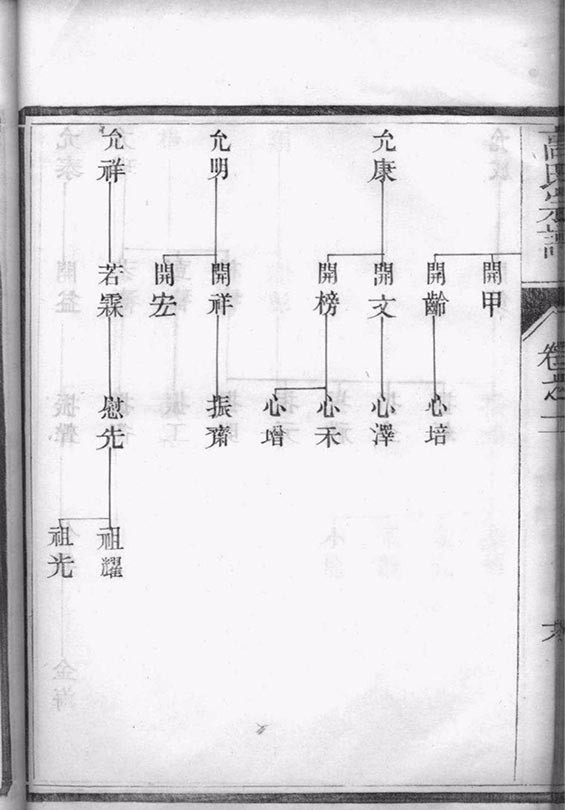 高氏宗譜
卷之二
允康
允明
允祥
開甲
開齡
開文
開榜
開祥
開宏
若霖
心培
心澤
心禾
心增
振齋
慰先
祖耀
祖光